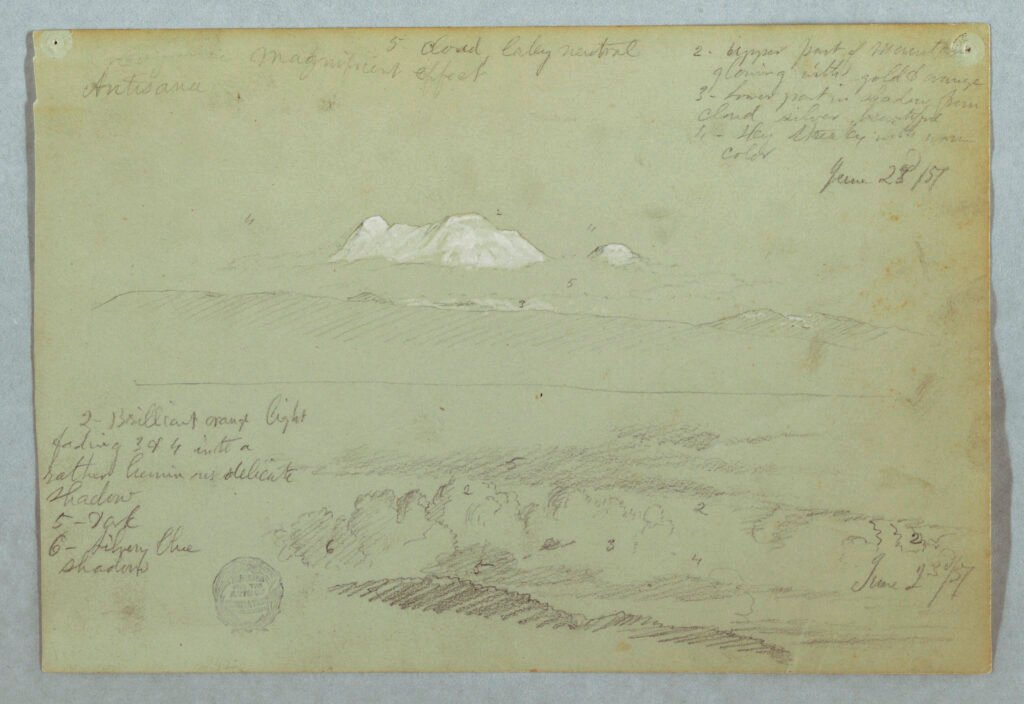 5 cloud
neutral
Magnificent effect
Antisana
2 - upper part of
glowing with gold & orange
3 - lower part in shadow from
cloud silver
4 - Sky with warm
color
June 23d /57
4
2
4
5
3
2 - Brilliant orange light
fading 3 & 4 into a
rather delicate
shadow
5 - Dark
6 - Silvery blue
shadow
5
2
2
2
6
3
4
5
June 23d /57